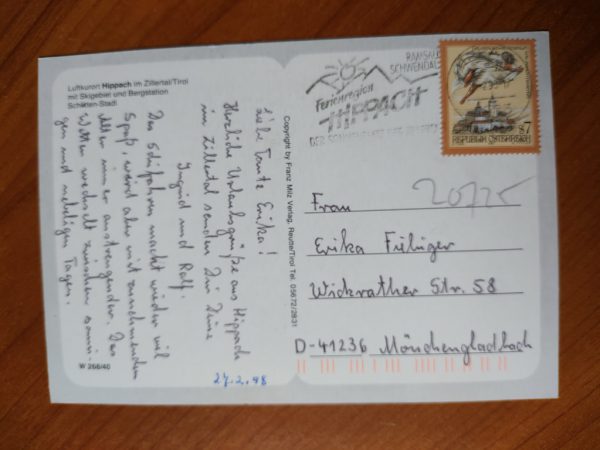 Luftkurort Hippach im Zillertal/Tirol
mit Skigebiet und Bergstation
Schlitten-Stadl
Liebe Tante Erika!
Herzliche Urlaubsgrüße aus Hippach
im Zillertal senden Dir Deine
Ingrid und Ralf.
Das Skifahren macht wieder viel
Spaß, wird aber mit zunehmenden
Alter immer anstrengender. Das
Wetter wechselt zwischen sonni-
gen und nebeligen Tagen.
W 266/40
27.2.98
Copyright by Franz Milz Verlag, Reutte/Tirol Tel. 05672/2831
RAMSAU
SCHWENDAU
Ferienregion
HIPPACH
REPUBLIK ÖSTERREICH
S7
20/25
Frau
Erika
Wickrather Str. 58
D-41236 Mönchengladbach